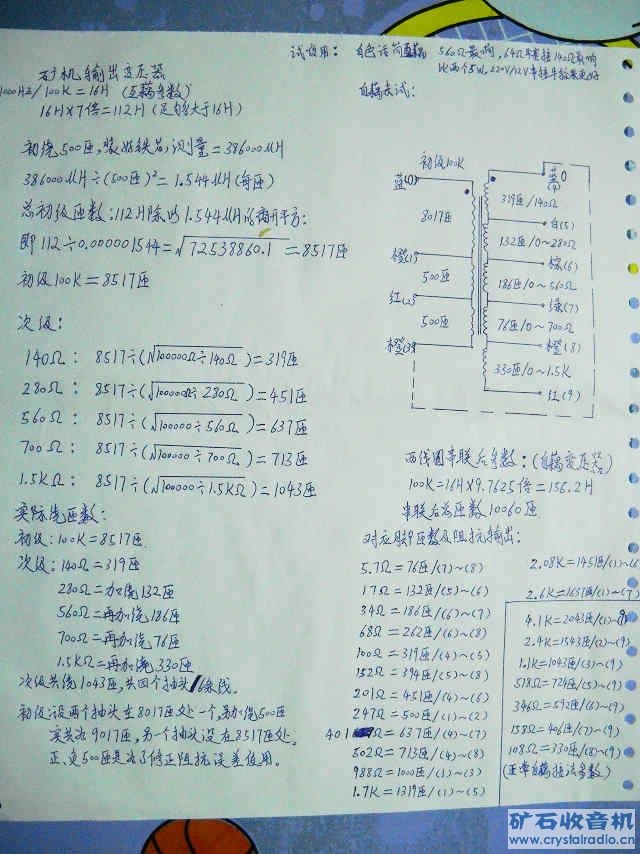 矿机输出变压器
1000HZ/100K=16H (互藕参数)
16H×7倍=112H (足句多大于16H)
初绕500匝,装好铁芯,测量=386000μH
386000μH÷(500匝)²=1.544μH(每匝)
总初级匝数:112H除以1.544μH的商开平方:
即112÷0.00001544=√72538860.1 =8517匝
初级100K=8517匝
次级:
140Ω: 8517÷(√100000Ω÷140Ω)=319匝
280Ω: 8517÷(√100000÷280Ω)=451匝
560Ω: 8517÷(√100000÷560Ω)=637匝
700Ω: 8517÷(√100000÷700Ω)=713匝
1.5KΩ: 8517÷(√100000÷1.5KΩ)=1043匝
实际绕匝数:
初级:100K=8517匝
次级:140Ω=319匝
280Ω=加绕132匝
560Ω=再加绕186匝
700Ω=再加绕76匝
1.5KΩ=再加绕330匝
次级共绕1043匝,共四个抽头 线.
初级:设两个抽头在8017匝处一个,再加绕500匝
实共为9017匝,另一个抽头设在8517匝处.
正、负500匝是为了修正阻抗误差使用.
试后用: 白色话筒 560Ω最响,64Ω串接140Ω最响
比两个5W,220V/12V串接牛效果更好
自藕表试:
初级100K
蓝(0)
8017匝
橙(1)
500匝
红(2)
500匝
橙(3)
蓝0
(4)
319匝/140Ω
白(5)
132匝/0~280Ω
棕(6)
186匝/0~560Ω
绿(7)
76匝/0~700Ω
橙(8)
330匝/0~1.5K
红(9)
两线圈串联后参数:(自藕变压器)
100K=16H×9.7625倍=156.2H
串联后总匝数10060匝.
对应引脚匝数及阻抗输出:
5.7Ω=76匝/(7)~(8)
17Ω=132匝/(5)~(6)
34Ω=186匝/(6)~(7)
68Ω=262匝/(6)~(8)
100Ω=319匝/(4)~(5)
152Ω=394匝/(5)~(8)
201Ω=451匝/(4)~(6)
247Ω=500匝/(1)~(2)
401Ω=637匝/(4)~(7)
502Ω=713匝/(4)~(8)
988Ω=1000匝/(1)~(3)
1.7K=1319匝/(1)~(5)
2.08K=1451匝/(1)~(6
2.6K=1637匝/(1)~(7)
4.1K=2043匝/(1)~(9)
2.4K=1543匝/(2)~(9)
1.1K=1043匝/(3)~(9)
518Ω=724匝/(5)~(9)
346Ω=592匝/(6)~(9)
158Ω=406匝/(7)~(9)
108Ω=330匝/(8)~(9)
(正常自藕接法参数)
矿石收音机
www.crystalradio.cn